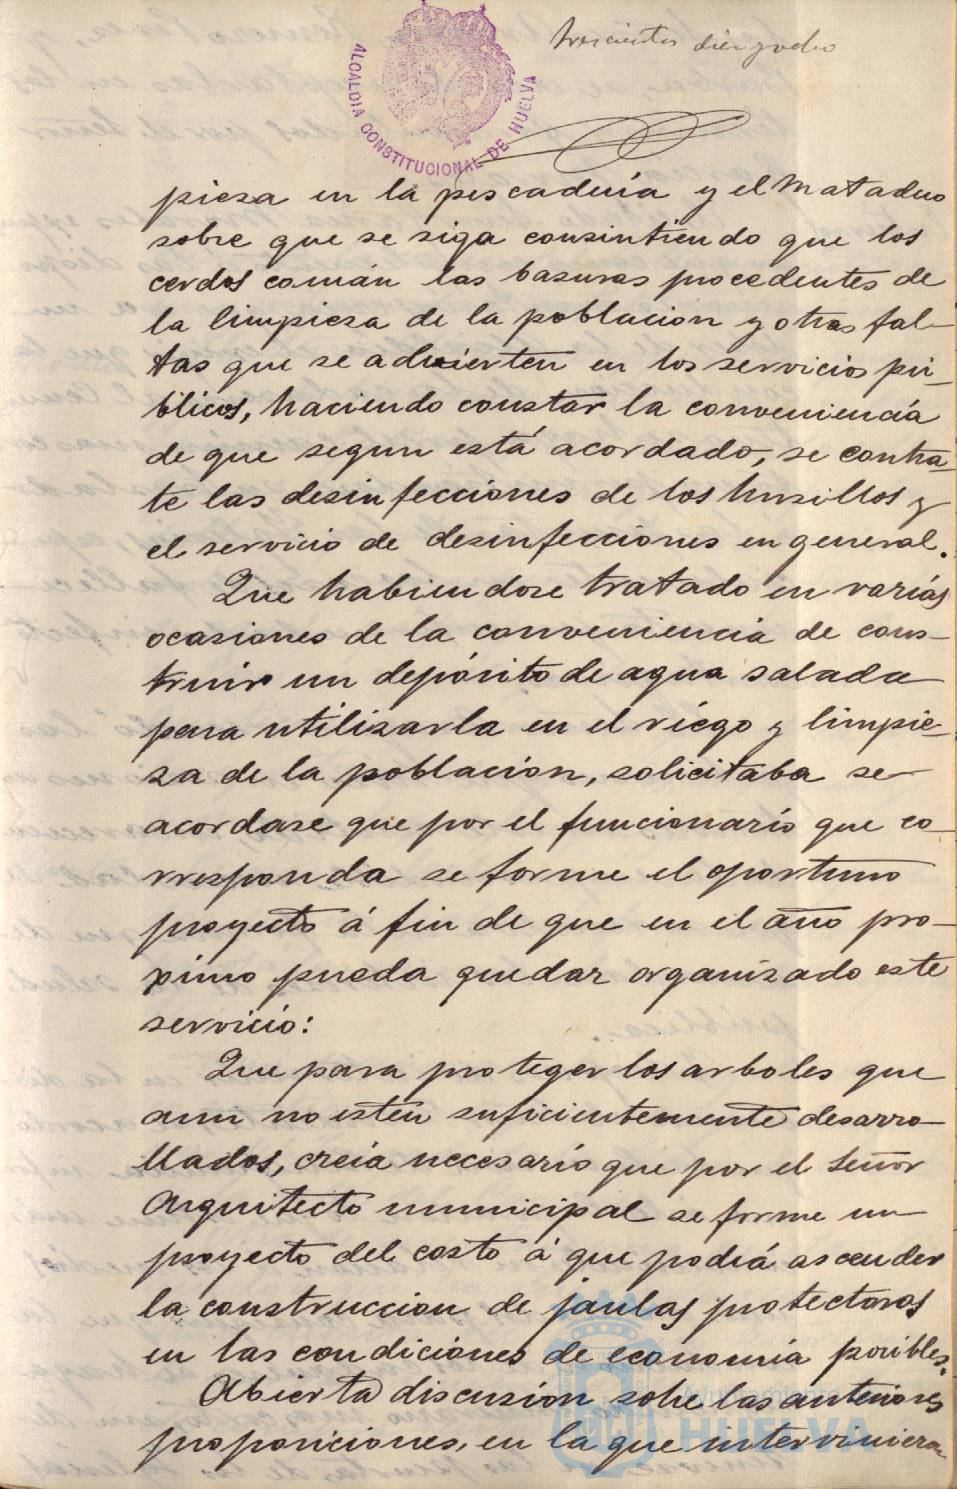 trescientos diez y ocho
ALCALDIA CONSTITUCIONAL DE HUELVA
pieza en la pescadería y el Matadero
sobre que se siga consintiendo que los
cerdos comán las basuras procedentes de
la limpieza de la poblacion y otras fal-
tas que se advierten en los servicios pú-
blicos, haciendo constar la conveniencia
de que segun está acordado, se contra-
te las desinfecciones de los husillos y
el servicio de desinfecciones en general.
Que habiendose tratado en varias
ocasiones de la conveniencia de cons-
truir un depósito de agua salada
para utilizarla en el riego y limpie-
za de la poblacion, solicitaba se
acordase que por el funcionario que co-
rresponda se forme el oportuno
proyecto á fin de que en el año pro-
ximo pueda quedar organizado este
servicio:
Que para proteger los arboles que
aun no estén suficientemente desarro-
llados, creia necesario que por el Señor
Arquitecto municipal se forme un
proyecto del costo á que podrá ascender
la construccion de jaulas protectoras
en las condiciones de economía posibles.
Abierta discusion sobre las anteriores
proposiciones, en la que intervinieron
Ayuntamiento
HUELVA